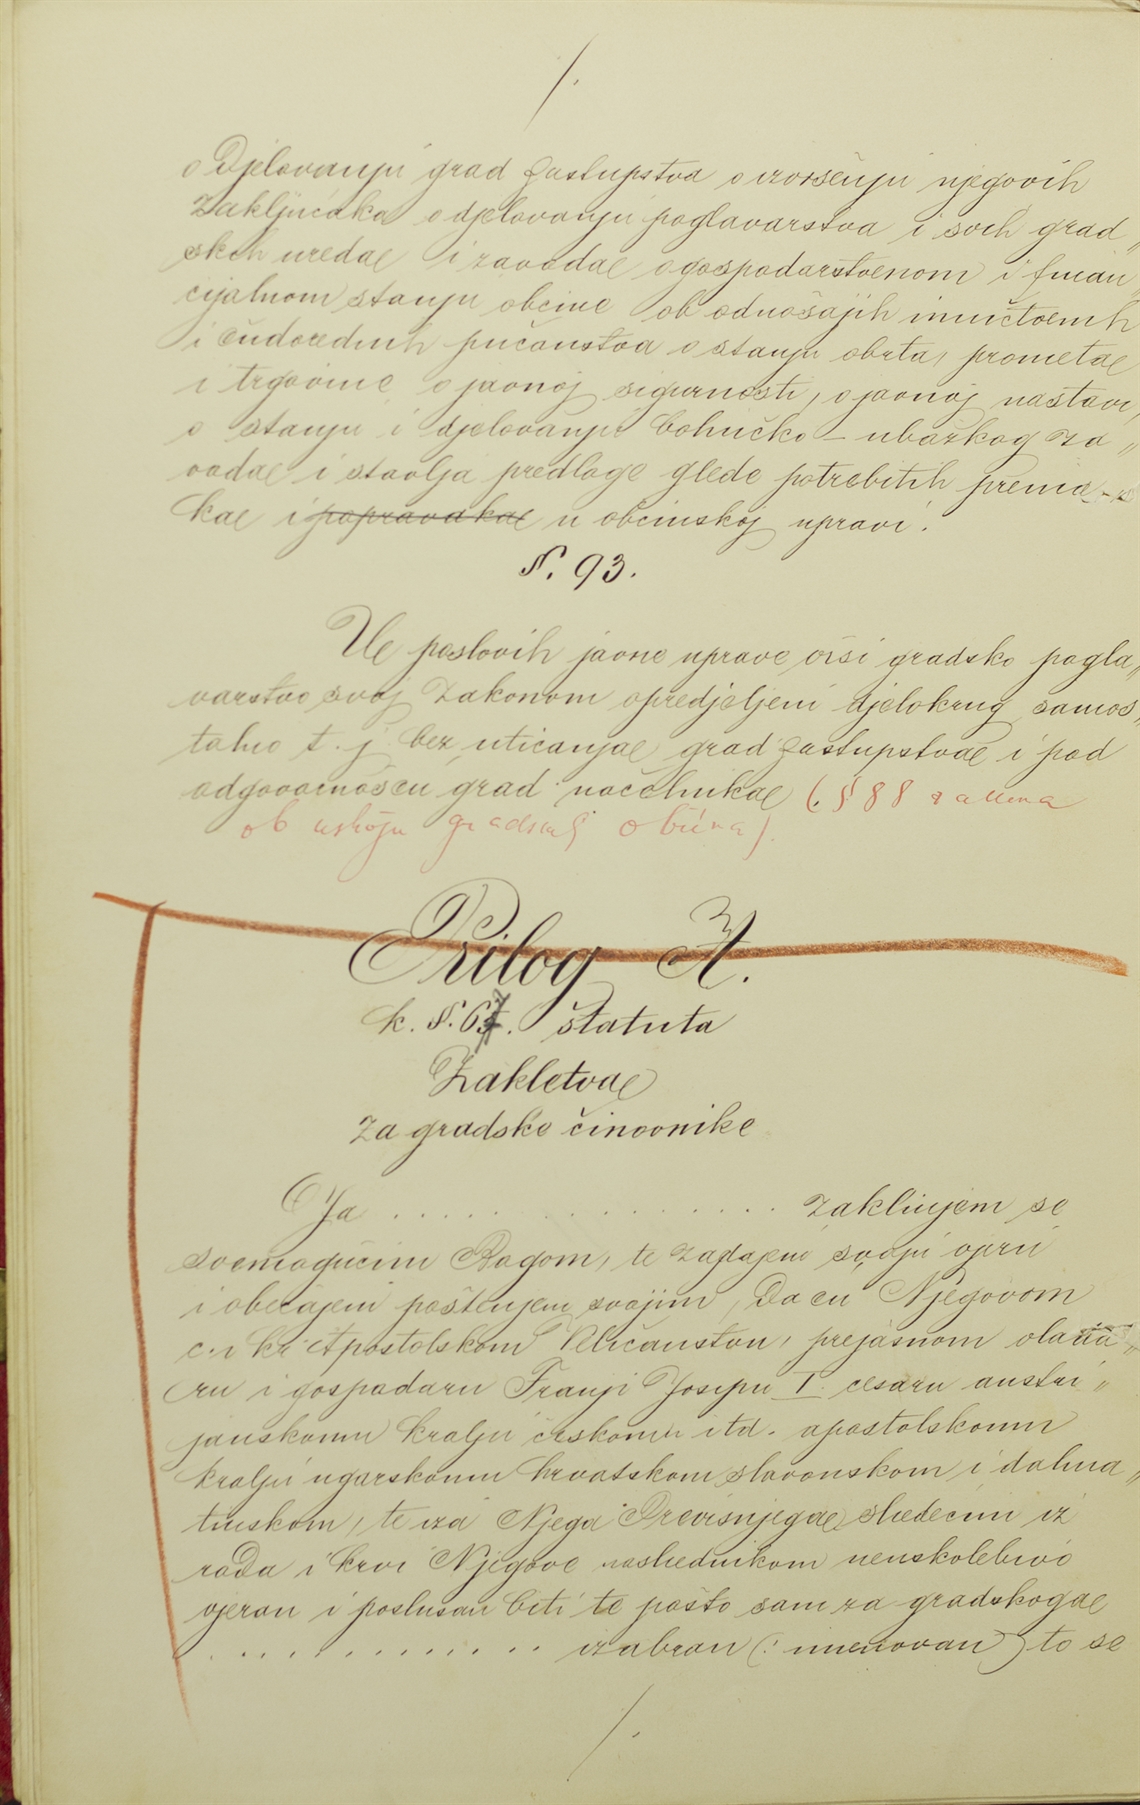 o djelovanju grad zastupstva o izvršenju njegovih
zaključaka o djelovanju poglavarstva i svih grad„
skih ureda i zavoda o gospodarstvenom i finan„
cijalnom stanju obćine ob odnošajih imućtvenih
i ćudorednih pučanstva o stanju obrta, prometa
i trgovine o javnoj sigurnosti, o javnoj nastavi,
o stanju i djelovanju bolničko-ubožkog za„
voda i stavlja predloge glede potrebitih prema-
ka i popravaka u obćinskoj upravi.
§. 93.
U poslovih javne uprave vrši gradsko pogla„
varstvo svoj zakonom opredjeljeni djelokrug samos„
talno t. j. bez uticanja grad zastupstva i pod
odgovornošću grad načelnika (. § 88 zakona
ob ustroju gradskih obćina).
Prilog A.
k. §. 67. štatuta
Zakletva
za gradske činovnike
Ja . . . . . . . . . . . . . . . . zaklinjem se
svemogućim Bogom, te zadajem svoju vjeru
i obećajem poštenjem svojim, da ću Njegovom
c. i kr Apostolskom Veličanstvu, prejasnom vlada„
ru i gospodaru Franji Josipu I. cesaru austri„
janskomu kralju českomu itd. apostolskomu
kralju ugarskomu hrvatskom slavonskom i dalma„
tinskom, te iza Njega Previšnjega sliedećim iz
roda i krvi Njegove nasliednikom neuskolebivo
vjeran i poslušan biti te pošto sam za gradskoga
. . . . . . . . . . . . izabran (: imenovan) to se